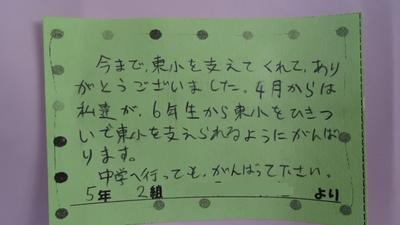 今まで、東小を支えてくれて、あり
がとうございました。4月からは
私達が、6年生から東小をひきつ
いで東小を支えられるようにがんば
ります。
中学へ行っても、がんばって下さい。
5年 2組 より